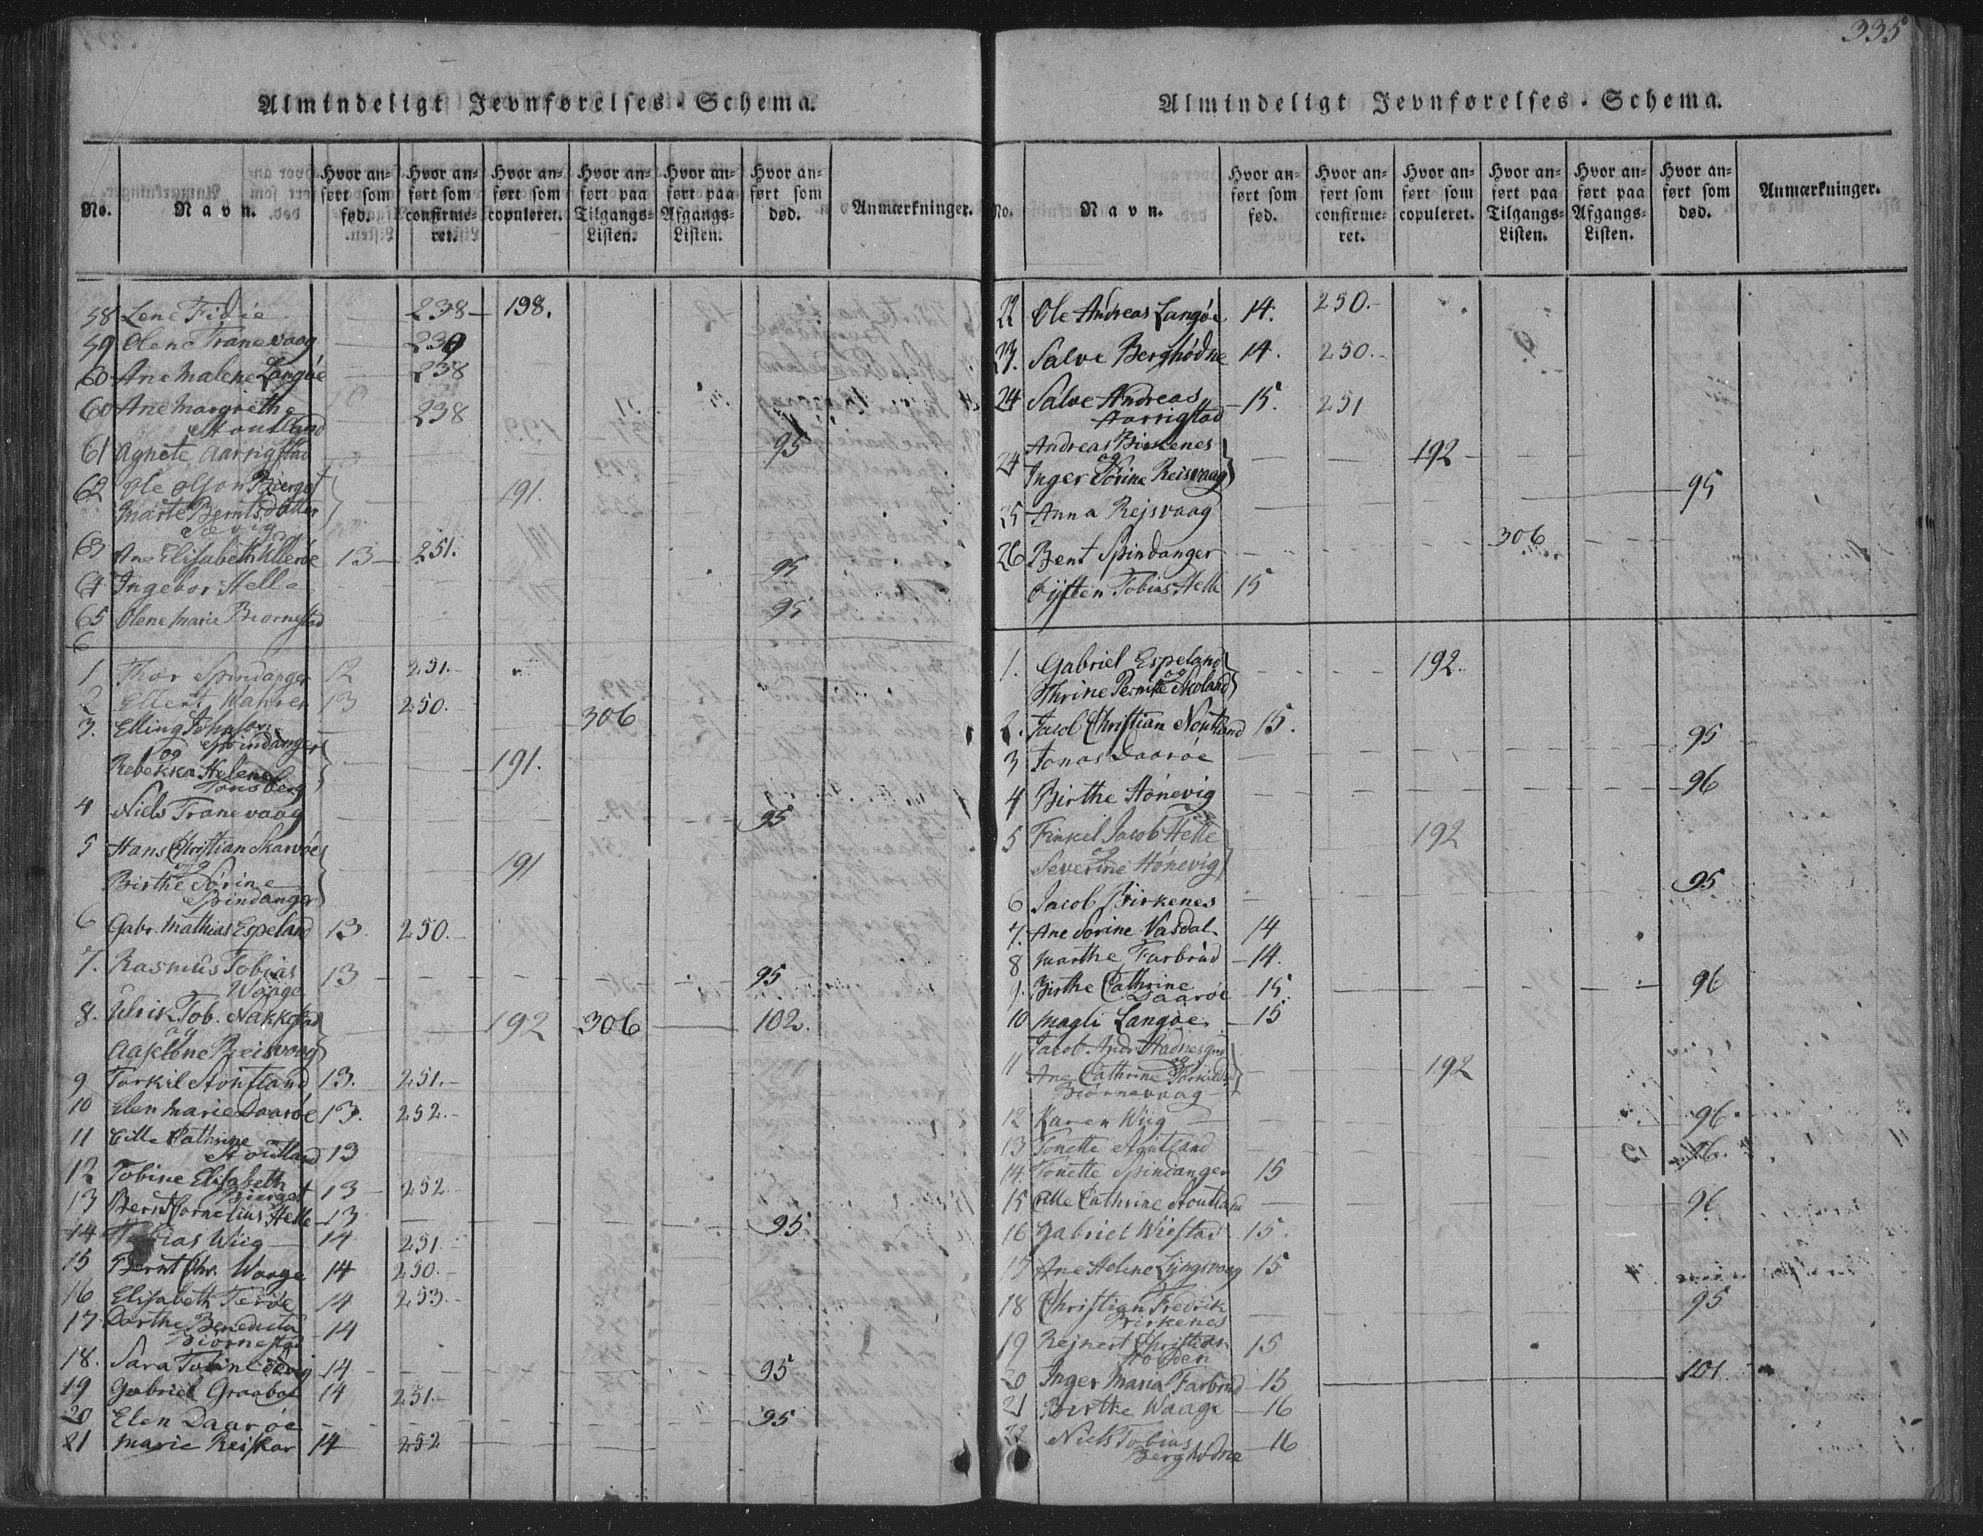 335
Almindeligt Jevnførelses-Schema.
No. Navn. Hvor anført som fød. Hvor anført som confirmeret. Hvor anført som copuleret. Hvor anført paa Tilgangs-Listen. Hvor anført paa Afgangs-Listen. Hvor anført som død. Anmærkninger.
58 Lene Fidie 238 198.
59 Olene Tranevaag 239
60 Ane Malene Langøe 238
60 Ane Margrethe 238
Stoutland
61 Agnete Aarrigstad 95
62 Ole Olson Bierget 191.
Marte Berntsdatter
Sævig
63 Ane Elisabeth Ullerøe 13 251.
64 Ingebor Helle 95
65 Olene Marie Biornestad 95
6
1 Thor Spindanger 12 251.
2 Ellert Wahrer 13 250.
3. Elling Johnson 306
Spindanger
og
Rebekka Helene 191.
Tonsberg
4 Niels Tranevaag 95
5 Hans Christian Skarvøe
og 191
Birthe Sørine
Spindanger
6 Gabr. Mathias Espeland 13. 250.
7. Rasmus Tobias 13 95
Waage
8. Ulrik Tob. Nakkestad 192 306 102.
og
Aaselene Reisvaag
9 Torkil Stoutland 13. 251.
10 Elen Marie Daarøe 13. 252.
11 Cille Cathrine
Stoutland 13
12 Tobine Elisabeth
Bierget 13 252
13 Bernt Cornelius Helle 13 95
14 Tobias Wiig 14 251.
15 Bernt Chr. Waage 14 250.
16 Elisabeth Terøe 14 253.
17 Dorthe Benedicta
Biornestad 14
18. Sara Tobine Sævig 14 95
19 Gabriel Graabæk 14 251.
20 Elen Daarøe 95
21 Marie Reiskar 14 252
Almindeligt Jevnførelses-Schema.
No. Navn. Hvor anført som fød. Hvor anført som confirmeret. Hvor anført som copuleret. Hvor anført paa Tilgangs-Listen. Hvor anført paa Afgangs-Listen. Hvor anført som død. Anmærkninger.
22 Ole Andreas Langøe 14. 250.
23. Salve Berghødne 14. 250.
24 Salve Andreas 15. 251
Aarrigstad
Andreas Birkenes
24 og 192
Inger Sørine Reisvaag
25 Anna Rejsvaag 95
26 Bent Spindanger 306
Øysten Tobias Helle 15
1. Gabriel Espeland 192.
og
Thrine Pernille Skoland
2. Jacob Christian Stoutland 15.
3 Jonas Daarøe 95
4 Birthe Hønevig 96
5 Finkel Jacob Helle 192
og
Severine Hønevig
6 Jacob Birkenes 95
7. Ane Sorine Vasdal 14
8 Marthe Farbrød 14.
9. Birthe Cathrine
Daarøe 15. 96
10 Magli Langøe 15
Jacob Andr. Stadnesgrd
11 og 192
Ane Cathrine Torkildsd
Biørnevaag
12 Karen Wiig 96
13 Tonette Stoutland 96.
14. Tonette Spindanger 15
15 Cille Cathrine Stoutland 96
16 Gabriel Wiestad 15.
17 Ane Helene Lyngsvaag 15
18 Christian Fredrik
Birkenes 95
19 Rejnert Christian 15
20 Inger Maria Farbrød 15 101
21 Birthe Waage 16
22 Niels Tobias 16
Berghødne